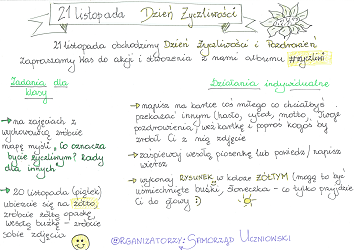 21 listopada Dzień Życzliwości
21 listopada obchodzimy Dzień Życzliwości i Pozdrowień
Zapraszamy Was do akcji i stworzenia z nami albumu #życzliwi
Zadania dla
klasy
→ na zajęciach z
wychowawcą zróbcie
mapę myśli „Co oznacza
bycie życzliwym? Rady
dla innych
→ 20 listopada (piątek)
ubierzcie się na żółto,
zróbcie żółtą opaskę,
weźcie buźkę - zróbcie
sobie zdjęcia
Działania indywidualne
→ napisz na kartce coś miłego co chciałbyś
przekazać innym (hasło, cytat, motto, Twoje
pozdrowienia), weź kartkę i poproś kogoś by
zrobił Ci z nią zdjęcie
→ zaśpiewaj wesołą piosenkę lub powiedz/napisz
wiersz
→ wykonaj RYSUNEK w kolorze ŻÓŁTYM (mogą to być
uśmiechnięte buźki, słoneczka - co tylko przyjdzie
Ci do głowy :)
@ORGANIZATORZY: SAMORZĄD UCZNIOWSKI